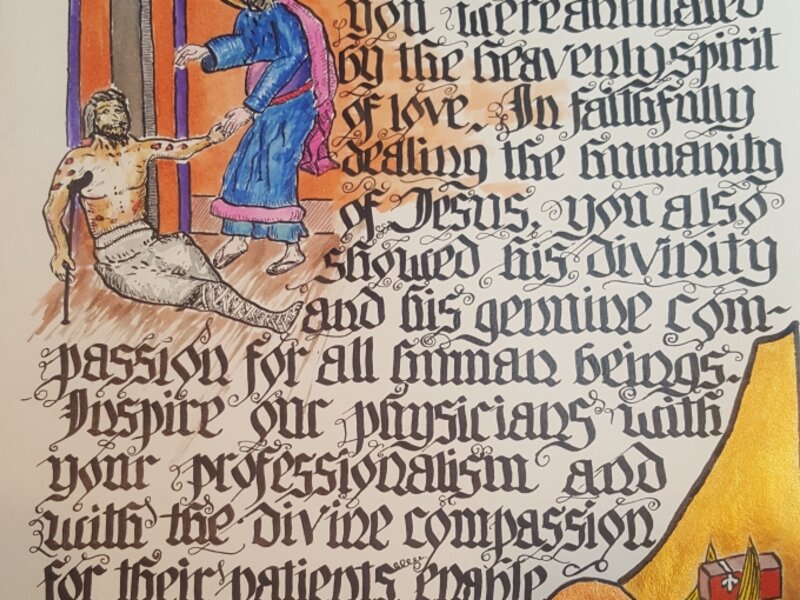 you were animated
by the heavenly spirit
of love. In faithfully
dealing the humanity
of Jesus, you also
showed his divinity
and his genuine com-
passion for all human beings.
Inspire our physicians with
your professionalism and
with the divine compassion
for their patients enable